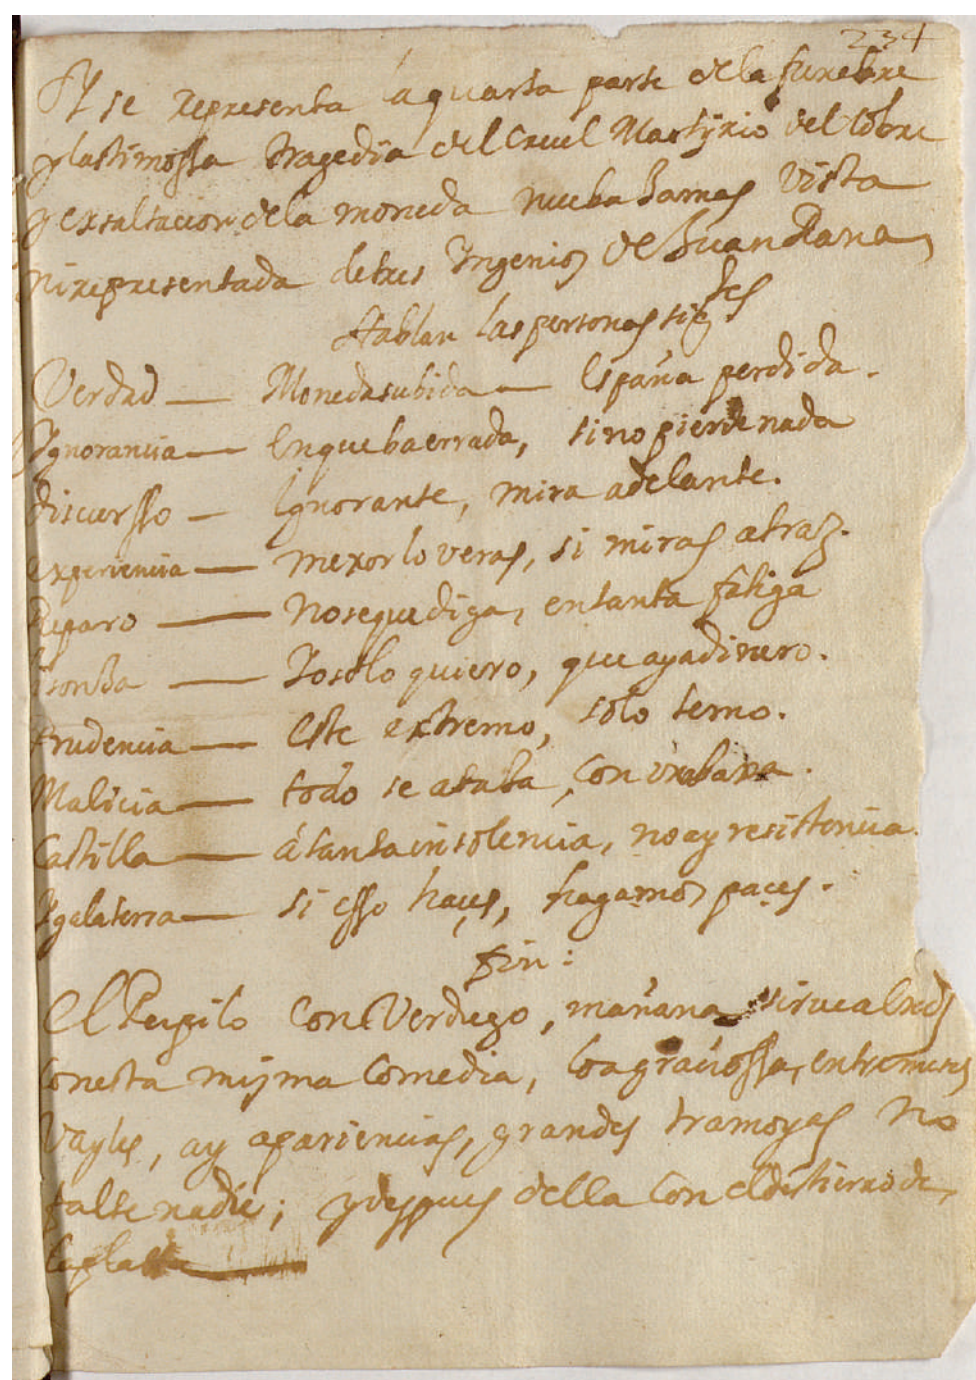 234
Y se representa la quarta parte dela funebre
y lastimossa tragedia del Cruel Martyrio del Cobre
y exsaltacion dela moneda nueba Jamas vista
ni representada de tres Yngenios de Buan Rana
Hablan las personas sigtes
Verdad — Moneda subida — España perdida.
Ygnorancia — Enquebaerrada, sino pierde nada
discursso — Ignorante, mira adelante.
experiencia — mexor lo veras, si miras atraz.
Reparo — no se que diga, en tanta fatiga
Yo solo quiero, que aya dinero.
Prudencia — Este extremo, solo temo.
Malicia — todo se ataba, con
Castilla — á tanta insolencia, no ay resistencia.
Ygalaterra — si esso haçes, hagamos paçes.
fin:
El Pupilo Con Verdugo, mañana
Con esta misma Comedia, loa graciossa, entremeses
Vayles, ay apariencias, grandes tramoyas no
falte nadie; y despues della Con el destierro de
la plata